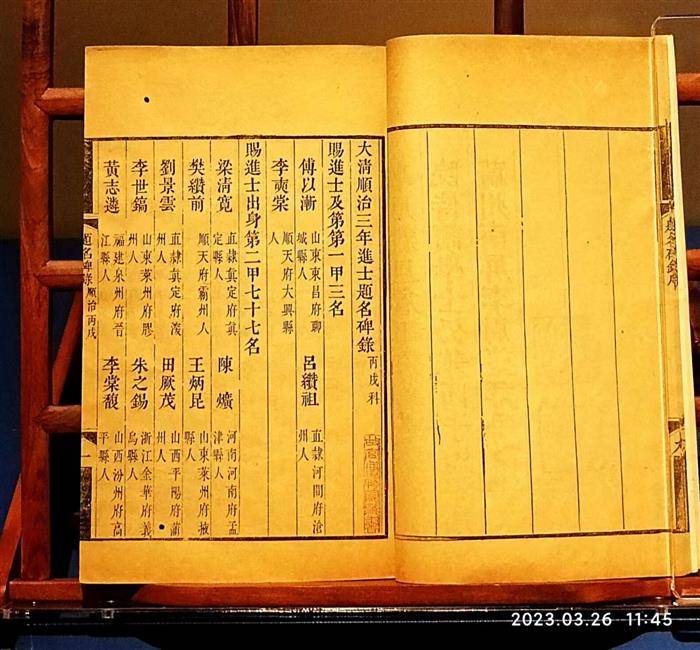 大清順治三年進士題名碑錄 丙戌科
賜進士及第第一甲三名
傅以漸 山東東昌府聊城縣人 呂纘祖 直隸河間府滄州人
李奭棠 順天府大興縣人
賜進士出身第二甲七十七名
梁清寬 直隸真定府真定縣人 陳爌 河南河南府孟津縣人
樊纘前 順天府霸州人 王炳昆 山東萊州府掖縣人
劉景雲 直隸真定府 州人 田厥茂 山西平陽府蒲州人
李世鎬 山東萊州府膠州人 朱之錫 浙江金華府義烏縣人
黃志遴 福建泉州府晉江縣人 李棠馥 山西汾州府高平縣人
題名碑錄 順治丙戌 一
題名碑錄序
2023.03.26 11:45